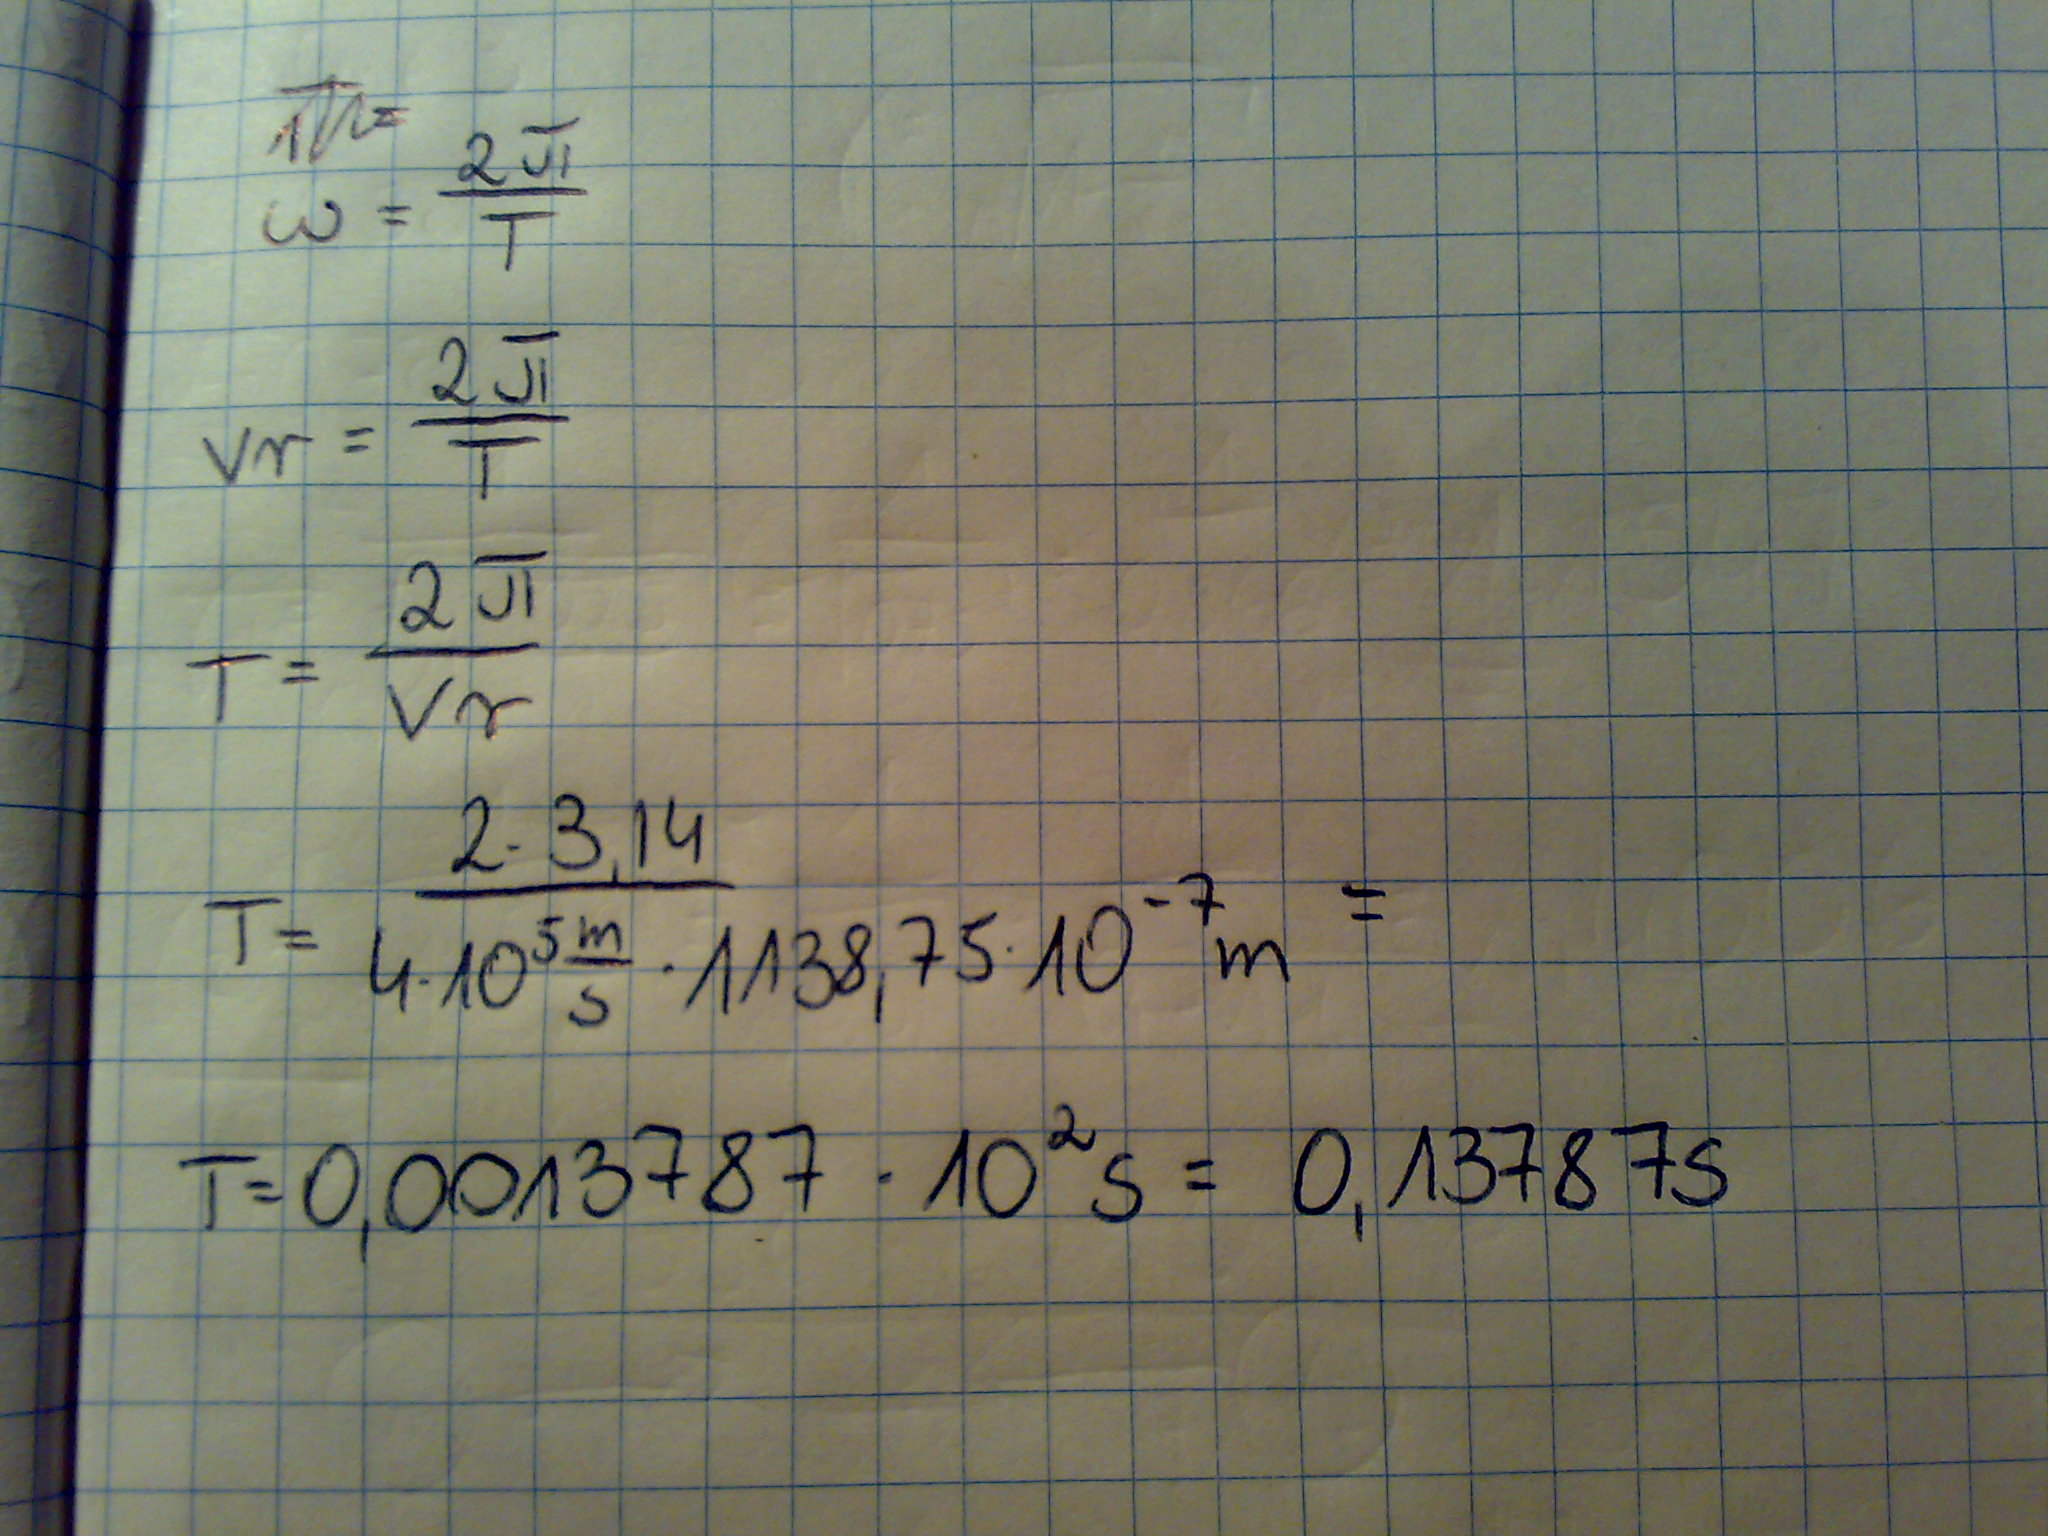 ω = 2π/T
vr = 2π/T
T = 2π/vr
T = 2·3,14 / 4·10⁵ m/s · 1138,75·10⁻⁷ m =
T = 0,0013787 · 10² s = 0,13787 s